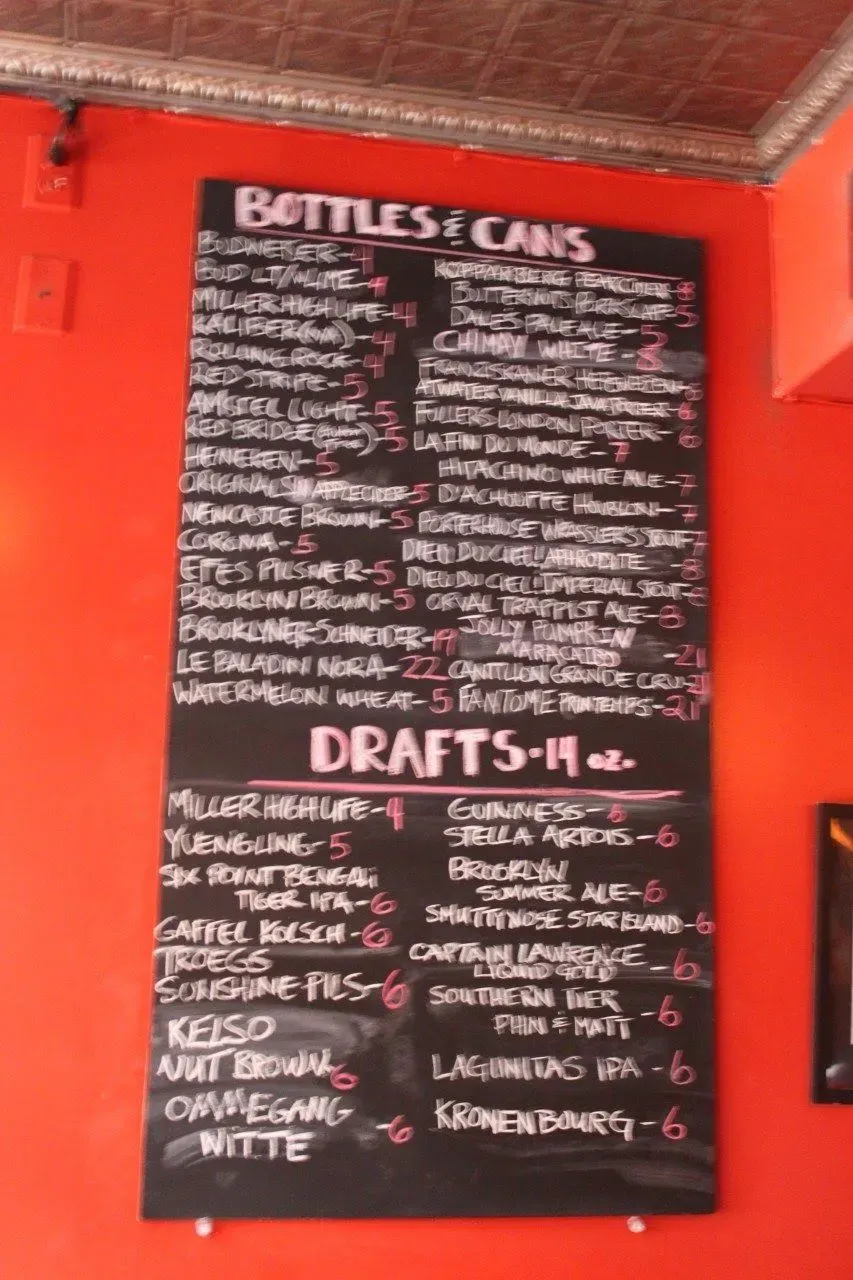 BOTTLES & CANS
BUDWEISER-4
BUD LT/W LIME-4
MILLER HIGH LIFE-4
KALIBER(NA)-4
ROLLING ROCK-4
RED STRIPE-5
AMSTEL LIGHT-5
RED BRIDGE(GLUTEN FREE)-5
HENEKEN-5
ORIGINAL SIN APPLE CIDER-5
NEWCASTLE BROWN-5
CORONA-5
EFES PILSNER-5
BROOKLYN BROWN-5
BROOKLYNER-SCHNEIDER-19
LE PALADIN NORA-22
WATERMELON WHEAT-5
KOPPARBERG PEAR CIDER-8
BUTTERNUTS PORKSLAP-5
DALE'S PALE ALE-5
CHIMAY WHITE-8
FRANZISKANER HEFEWEIZEN-6
ATWATER VANILLA JAVA PORTER-6
FULLERS LONDON PORTER-6
LA FIN DU MONDE-7
HITACHINO WHITE ALE-7
D'ACHOUFFE HOUBLON-7
PORTERHOUSE WRASSLERS STOUT-7
DIEU DU CIEL! APHRODITE-8
DIEU DU CIEL! IMPERIAL STOUT-8
ORVAL TRAPPIST ALE-8
JOLLY PUMPKIN
MARACAIBO-21
CANTILLON GRANDE CRU-21
FANTOME PRINTEMPS-21
DRAFTS-14 oz.
MILLER HIGH LIFE-4
YUENGLING-5
SIX POINT BENGALI
TIGER IPA-6
GAFFEL KOLSCH-6
TROEGS
SUNSHINE PILS-6
KELSO
NUT BROWN-6
OMMEGANG
WITTE-6
GUINNESS-6
STELLA ARTOIS-6
BROOKLYN
SUMMER ALE-6
SMUTTYNOSE STAR ISLAND-6
CAPTAIN LAWRENCE
LIQUID GOLD-6
SOUTHERN TIER
PHIN & MATT-6
LAGUNITAS IPA-6
KRONENBOURG-6